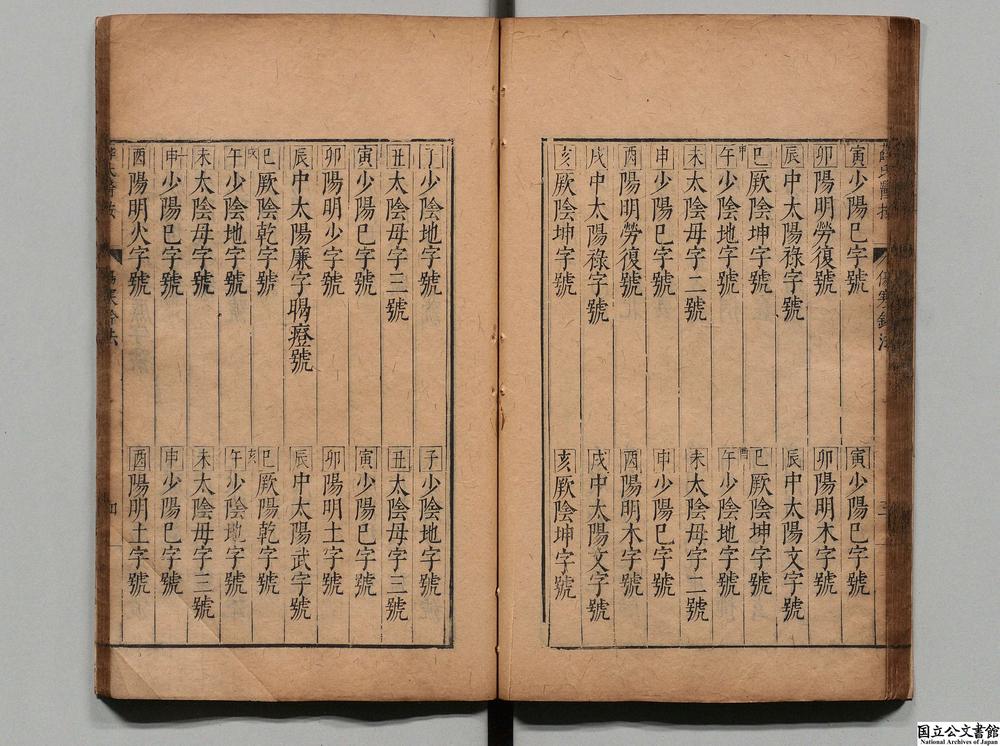 薛氏醫按
傷寒鈐法
三
寅少陽巳字號
卯陽明勞復號
辰中太陽祿字號
巳厥陰坤字號
申
午少陰地字號
未太陰母字二號
申少陽巳字號
酉陽明勞復號
戌中太陽祿字號
亥厥陰坤字號
寅少陽巳字號
卯陽明木字號
辰中太陽文字號
巳厥陰坤字號
酉
午少陰地字號
未太陰母字二號
申少陽巳字號
酉陽明木字號
戌中太陽文字號
亥厥陰坤字號
子少陰地字號
丑太陰母字三號
寅少陽巳字號
卯陽明少字號
辰中太陽廉字暍痙號
巳厥陰乾字號
戌
午少陰地字號
未太陰母字號
申少陽巳字號
酉陽明火字號
子少陰地字號
丑太陰母字三號
寅少陽巳字號
卯陽明土字號
辰中太陽武字號
巳厥陽乾字號
亥
午少陰地字號
未太陰母字三號
申少陽巳字號
酉陽明土字號
国立公文書館
National Archives of Japan